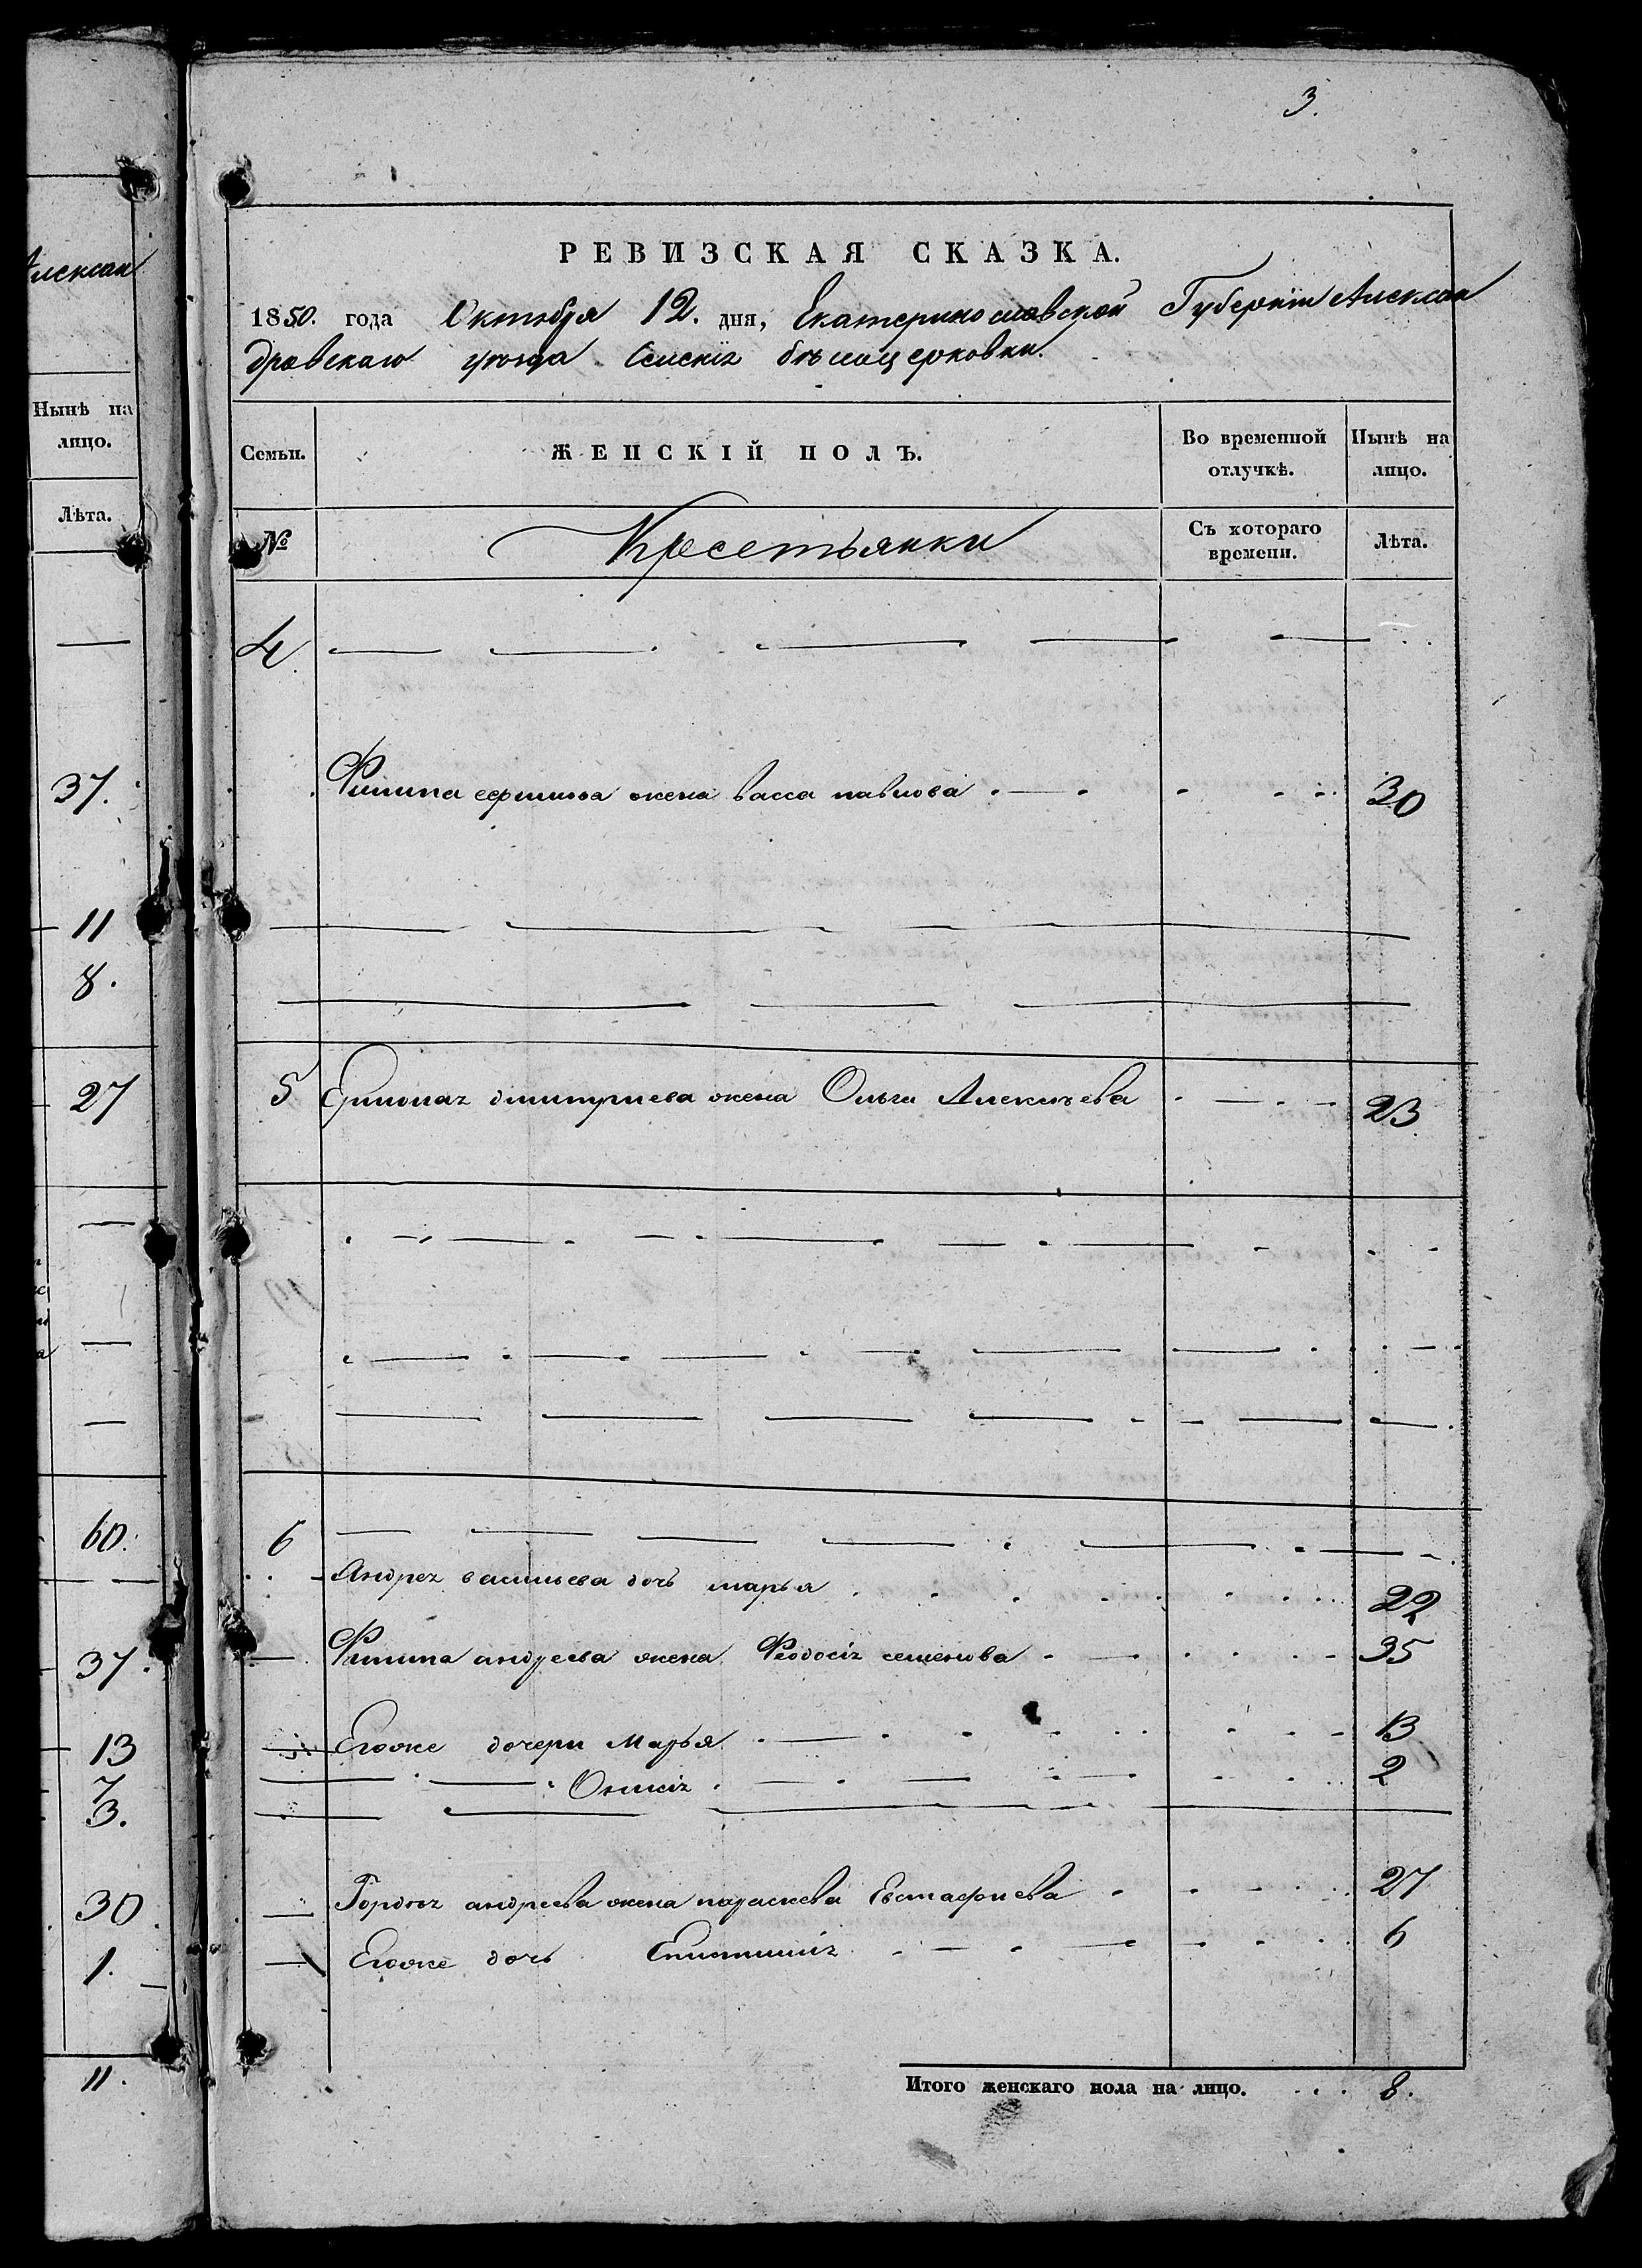 3.
РЕВИЗСКАЯ СКАЗКА.
1850. года Октября 12. дня, Екатеринославской Губернiи Алексан
дровскаго уѣзда Белоцерковки.
Алексан
Нынѣ на
лицо.
Лѣта.
37.
11
8.
27
60.
37.
13
7
3.
30
1.
11.
Семьи.
ЖЕНСКІЙ ПОЛЪ.
Во временной
отлучкѣ.
Нынѣ на
лицо.
№
Кресетьянки
Съ котораго
времени.
Лѣта.
4
Филипа ефимова жена васса павлова 30
5 дмитриева жена Ольга Алексѣева 23
6
Андрея васильева дочь марья 22
Филипа андреева жена Феодосiя семенова 35
Егоже дочери Марья 13
2
Гордѣя андреева жена параскева Евстафиева 27
Егоже дочь 6
Итого женскаго пола на лицо. 8.